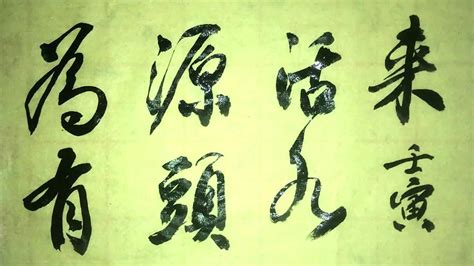 為有
源頭
活水
来
壬寅